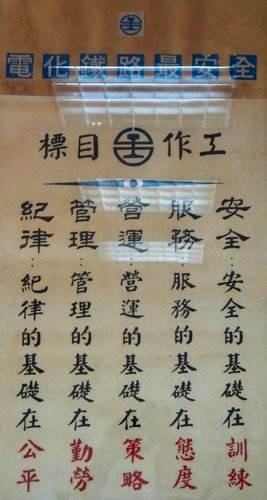 電化鐵路最安全
工作目標
安全…安全的基礎在訓練
服務…服務的基礎在態度
營運…營運的基礎在策略
管理…管理的基礎在勤勞
紀律…紀律的基礎在公平